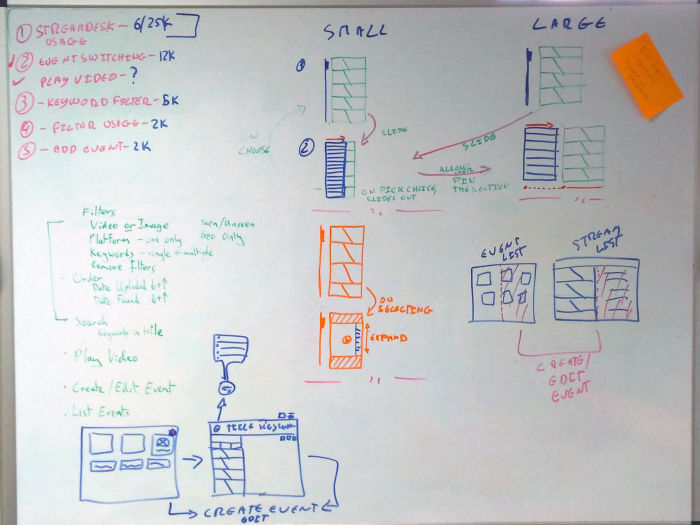 ① STREAMDESK - 6/25K
USAGE
② EVENT SWITCHING - 12K
PLAY VIDEO - ?
③ - KEYWORD FILTER - 5K
④ - FILTER USAGE - 2K
⑤ - ADD EVENT - 2K
SMALL
LARGE
①
SLIDE
ON
CHOOSE
②
SLIDE
ALLOW
PIN
THE SECTION
ON PICK CHOICE
SLIDE OUT
Filters
Video or Image Seen/Unseen
Platform - one only Geo Only
Keywords - single + multiple
Remove filters
Order
Date Uploaded ↓+↑
Date Found ↓+↑
Search
Keywords in title
· Play Video
· Create/Edit Event
· List Events
ON
SELECTING
EXPAND
EVENT
LIST
STREAM
LIST
CREATE/
EDIT
EVENT
TITLE
CREATE EVENT
EDIT